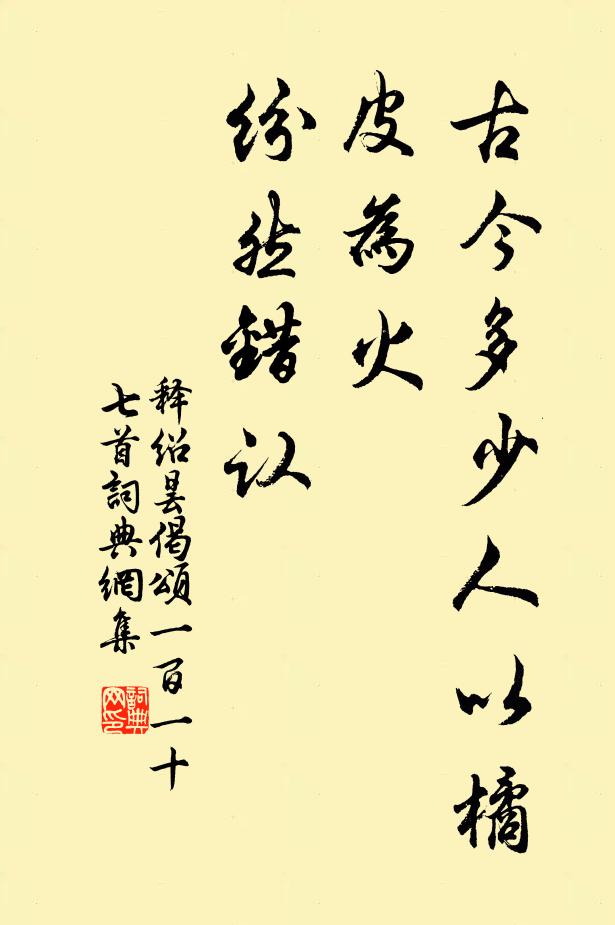 古今多少人以橘
皮為火
紛然錯认
释紹昙偈頌一百一十
七首詞典網集
詞典
网印